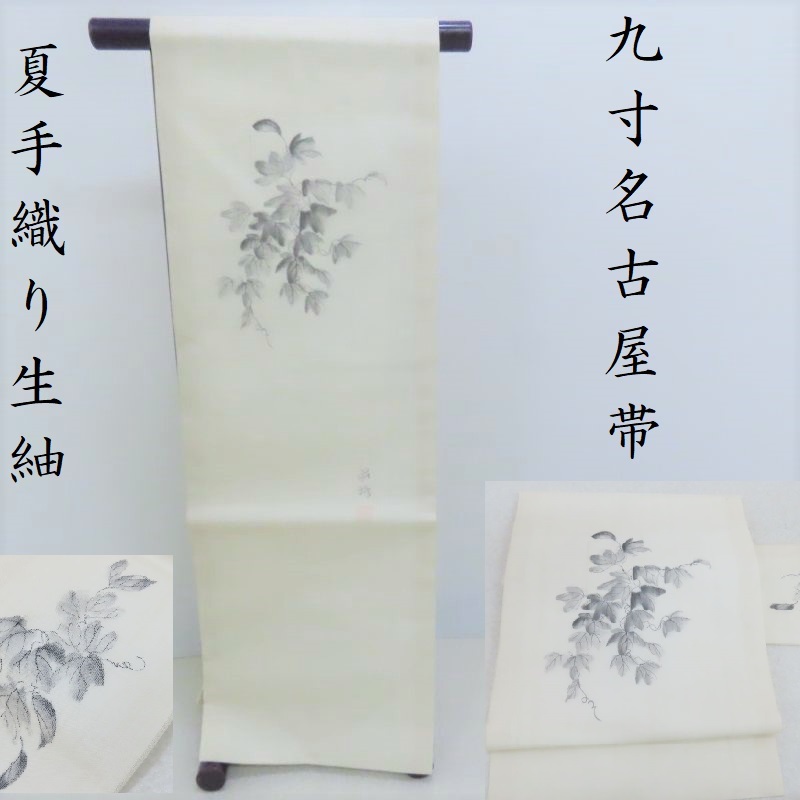 九寸名古屋帯
夏手織り生紬